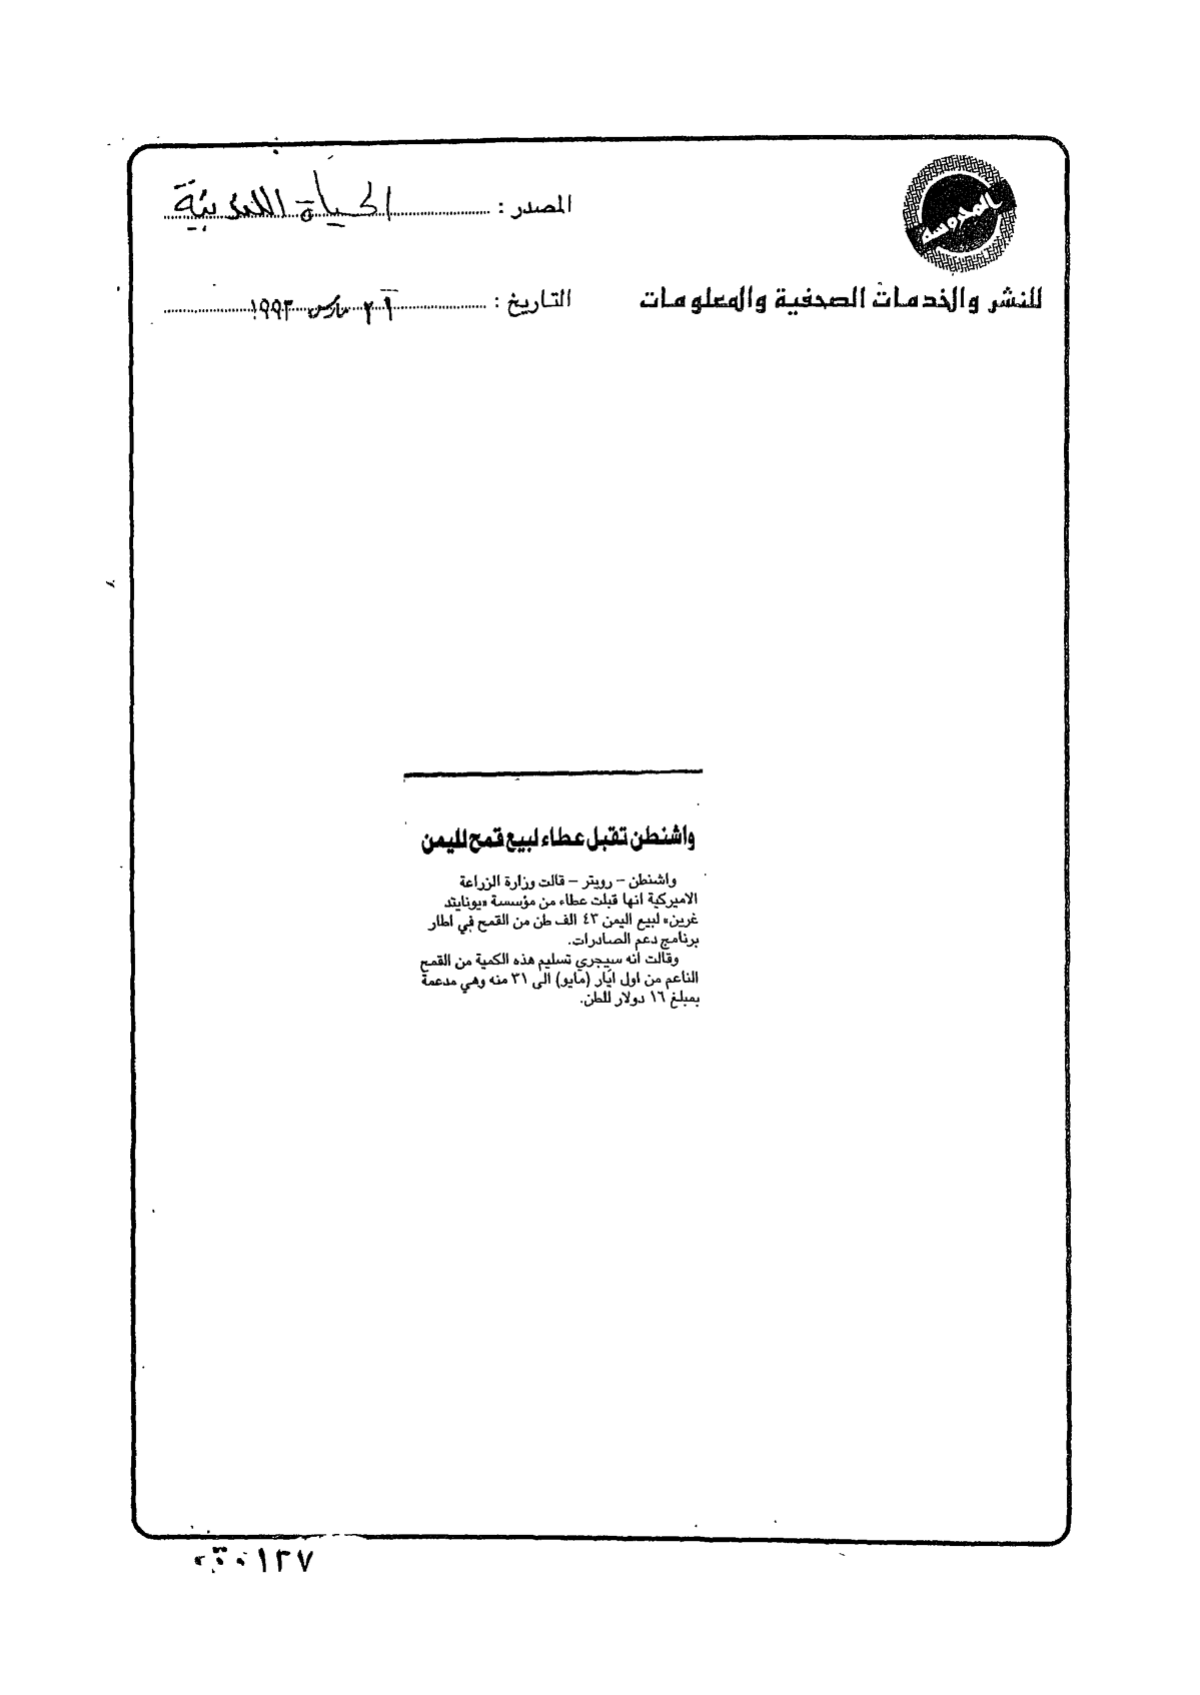 المحروسة
المصدر : الحياة اللندنية
للنشر والخدمات الصحفية والمعلومات
التاريخ : ٢٦ مارس ١٩٩٣
واشنطن تقبل عطاء لبيع قمح لليمن
واشنطن – رويتر – قالت وزارة الزراعة
الاميركية انها قبلت عطاء من مؤسسة «يونايتد
غرين» لبيع اليمن ٤٣ الف طن من القمح في اطار
برنامج دعم الصادرات.
وقالت انه سيجري تسليم هذه الكمية من القمح
الناعم من اول ايار (مايو) الى ٣١ منه وهي مدعمة
بمبلغ ١٦ دولار للطن.